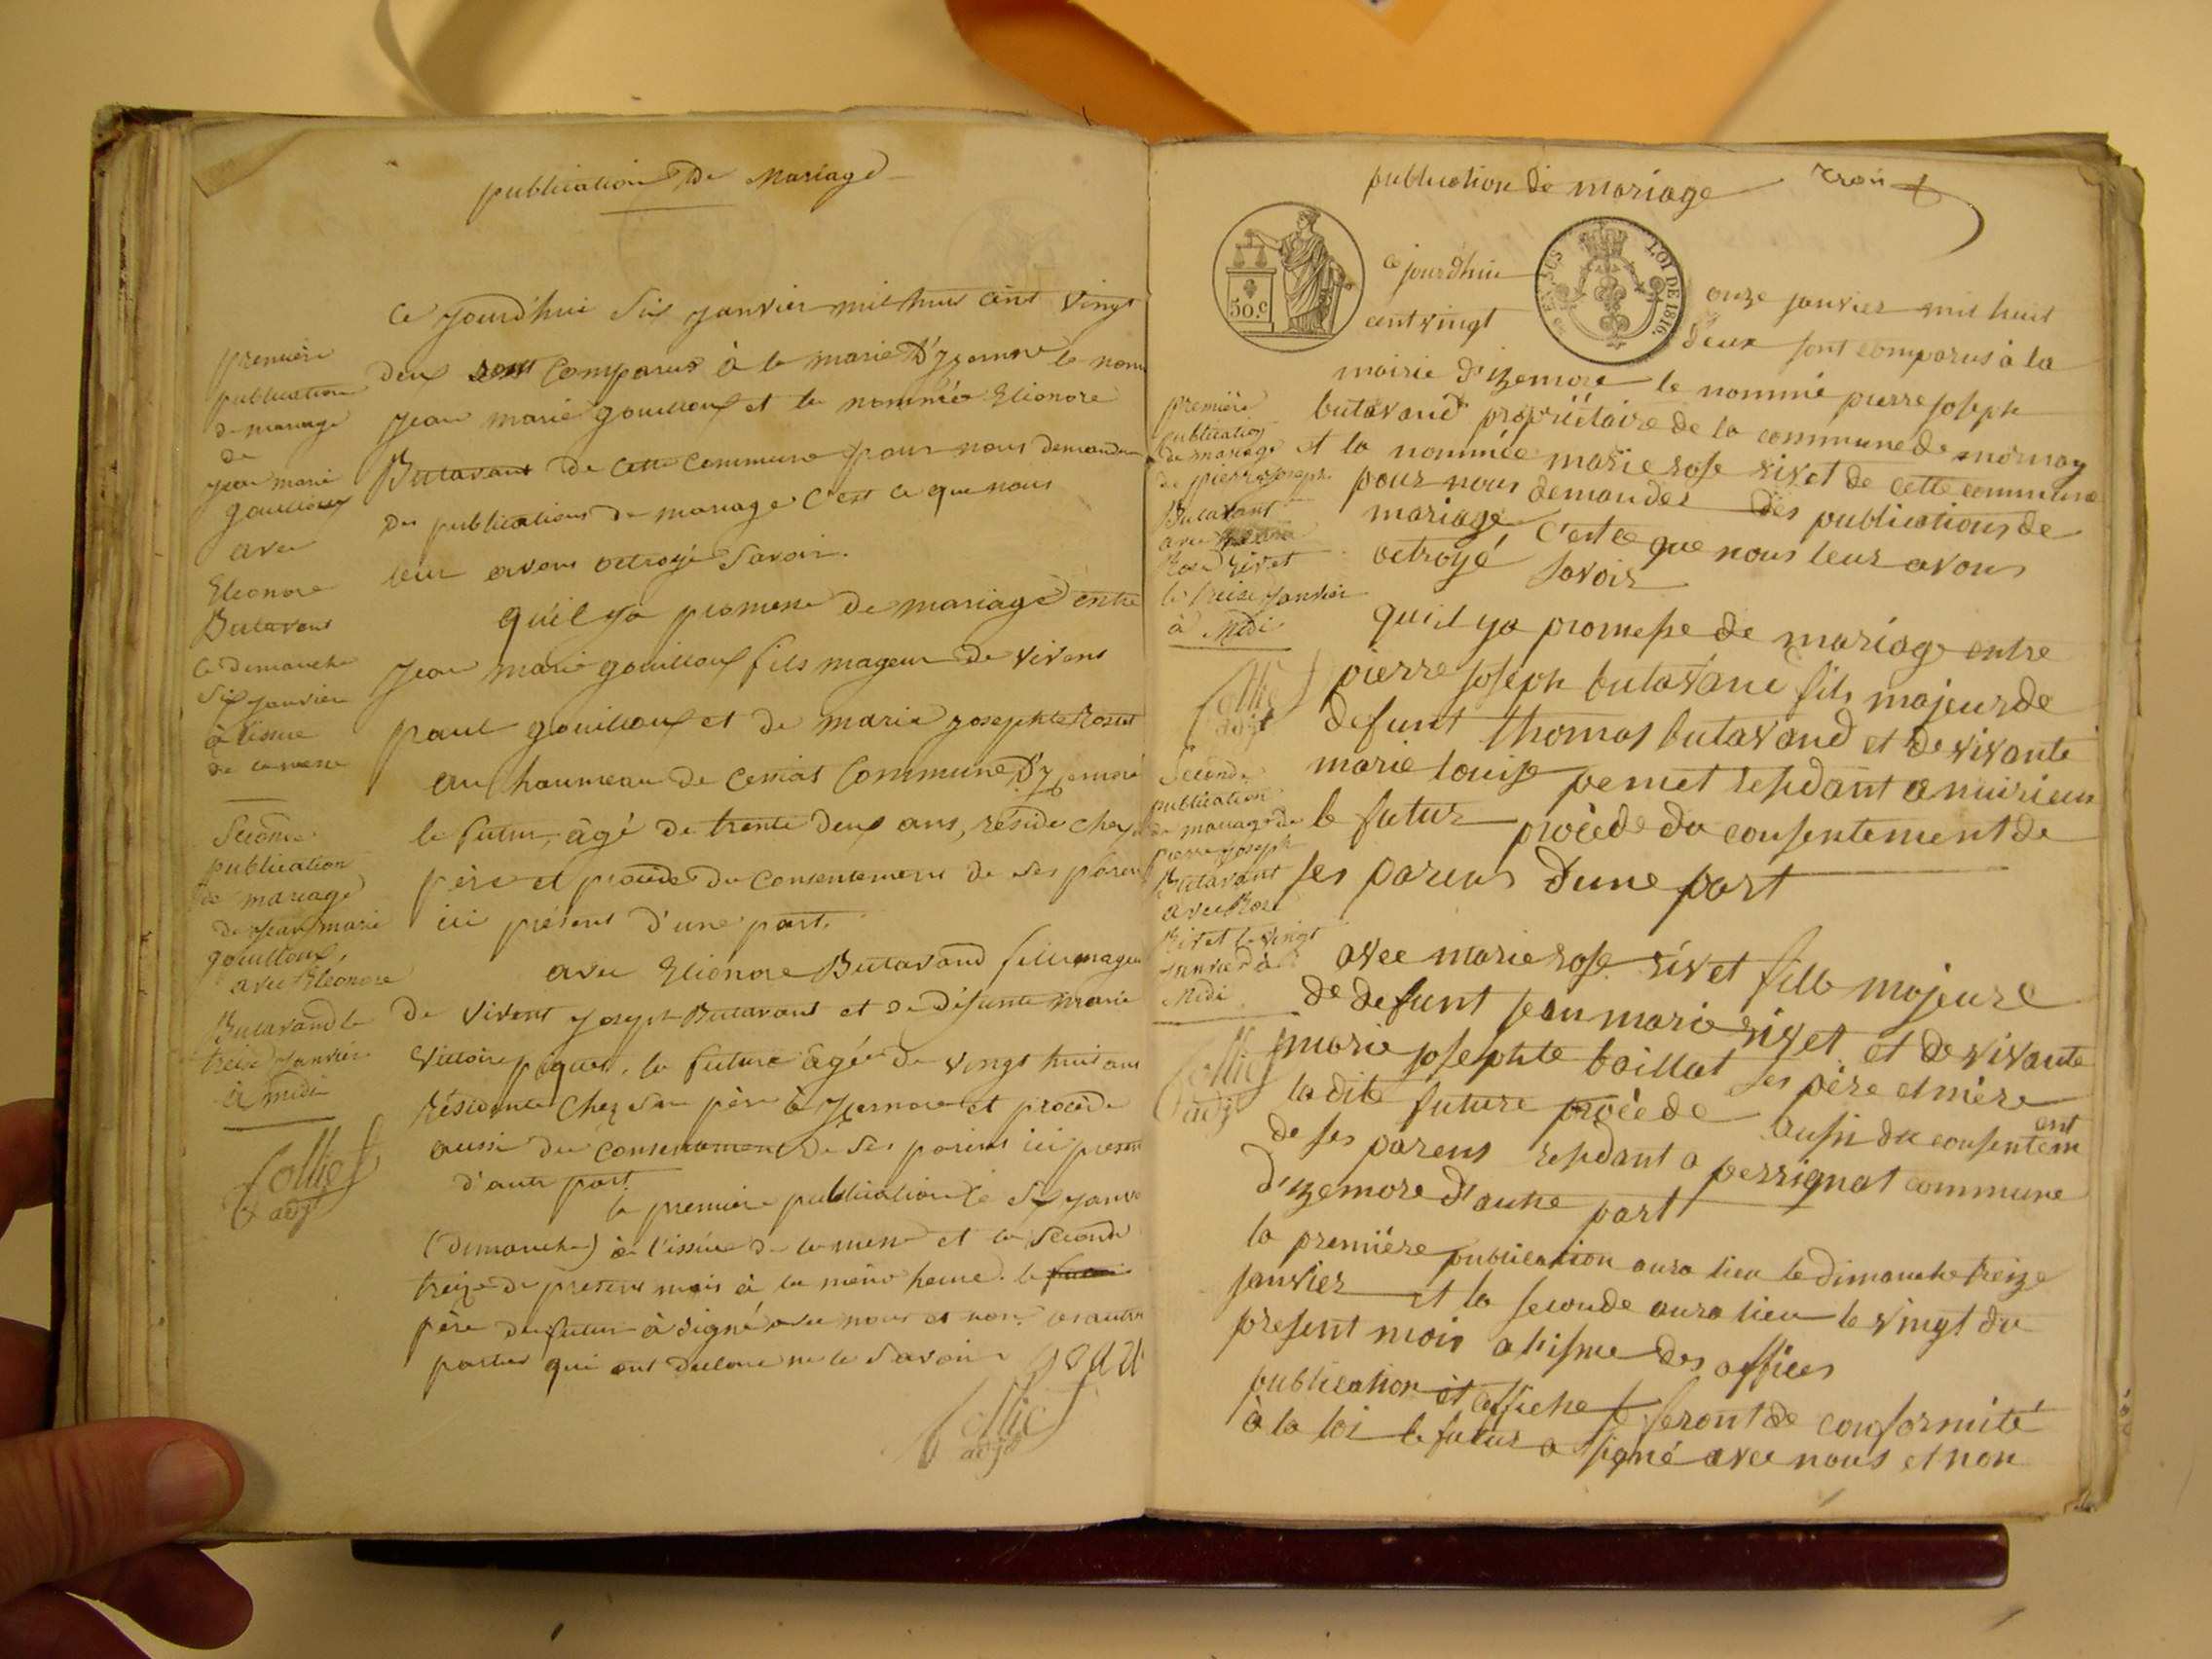 publication de Mariage
Ce Jourd'hui Six Janvier mil huit cent vingt
deux sont Comparus à la mairie D'Yzernore le nom
Jean marie gouilloux et la nommée Elionore
Butavant de cette Commune pour nous demander
des publications de mariage C'est ce que nous
leur avons octroyé Savoir.
qu'il ya promesse de mariage entre
Jean marie gouilloux fils mageur de vivens
paul gouilloux et de marie josephte
au haumeau de Cessiat Commune D'Yzernore
le futur, âgé de trente deux ans, réside chez
père et procède du Consentement de ses paren
ici présent d'une part.
avec Elionore Butavand fille mageu
De vivent Joseph Butavant et de défunte marie
Victoire la future âgée de vingt huit ans
Résidente Chez son père à Yzernore et procède
aussi du Consentement de ses parens ici present
d'autre part.
la première publication le Six Janv
(dimanche) à l'issüe de la messe et la Seconde
treize du present mois à la même heure. le
père du futur à signé avec nous et non les autres
parties qui ont déclaré ne le Savoir
goux
Collief
adjt
première
publication
de mariage
de
jean marie
gouilloux
avec
Eleonore
Butavant
le dimanche
Six Janvier
à l'issue
de la messe
Seconde
publication
de mariage
de Jean marie
gouilloux,
avec Eleonore
Butavand le
treize Janvier
à midi
Collief
adjt
publication de mariage
trois
50.c
LOI DE 1816.
ce jourd'hui onze janvier mil huit
cent vingt deux sont comparus à la
mairie d'izernore le nommé pierre joseph
butavand propriétaire de la commune de mornay
et la nommée marie rose rivet de cette commune
pour nous demander des publications de
mariage C'est ce que nous leur avons
octroyé Savoir
qu'il ya promesse de mariage entre
pierre joseph butavand fils majeur de
defunt thomas butavand et de vivante
marie louise pernet residant a
le futur procède du consentement de
ses parens d'une part
avec marie rose rivet fille majeure
de defunt jean marie rivet et de vivante
marie josephte baillat ses père et mère
la dite future procède aussi du consentem
ent
de ses parens residant a perrignat commune
d'izernore d'autre part
la première publication aura lieu le dimanche treize
janvier et la seconde aura lieu le vingt du
present mois a l'issue des offices
publication et affiche se feront de conformité
à la loi le futur a signé avec nous et non
première
publication
de mariage
de pierre joseph
Butavant
avec
Rose Rivet
le treize Janvier
à Midi
Collief
adjt
Seconde
publication
de mariage de
pierre joseph
Butavant
avec Rose
Rivet le vingt
janvier à
Midi
Collief
adjt